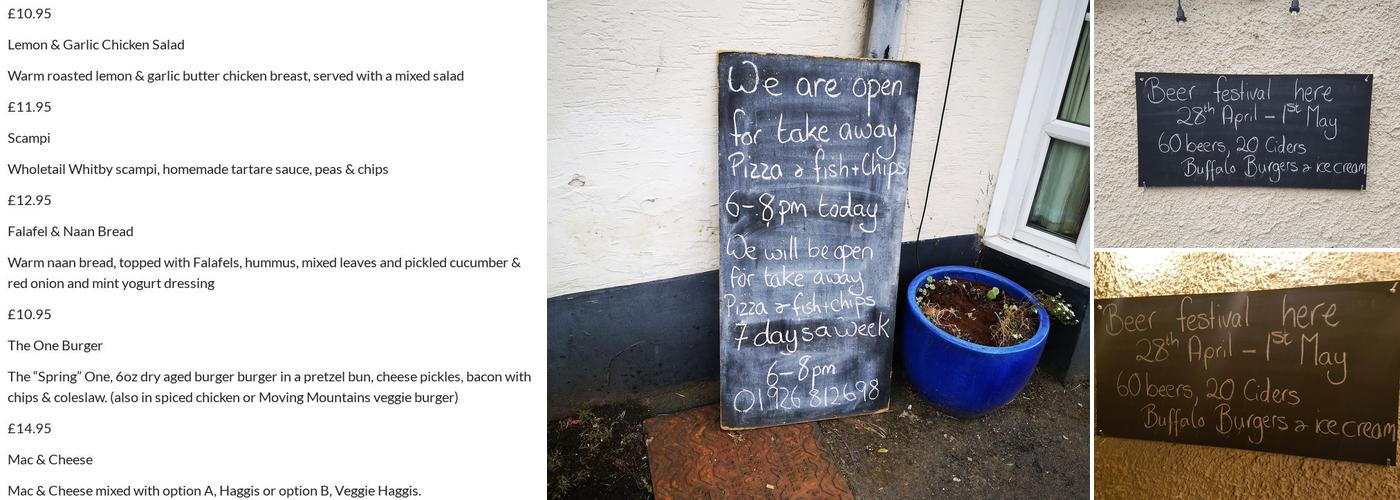 £10.95
Lemon & Garlic Chicken Salad
Warm roasted lemon & garlic butter chicken breast, served with a mixed salad
£11.95
Scampi
Wholetail Whitby scampi, homemade tartare sauce, peas & chips
£12.95
Falafel & Naan Bread
Warm naan bread, topped with Falafels, hummus, mixed leaves and pickled cucumber &
red onion and mint yogurt dressing
£10.95
The One Burger
The “Spring” One, 6oz dry aged burger burger in a pretzel bun, cheese pickles, bacon with
chips & coleslaw. (also in spiced chicken or Moving Mountains veggie burger)
£14.95
Mac & Cheese
Mac & Cheese mixed with option A, Haggis or option B, Veggie Haggis.
We are open
for take away
Pizza & fish+Chips
6-8pm today
We will be open
for take away
Pizza & fish+chips
7 days a week
6-8pm
01926 812698
Beer festival here
28th April - 1st May
60 beers, 20 Ciders
Buffalo Burgers & ice cream
Beer festival here
28th April - 1st May
60 beers, 20 Ciders
Buffalo Burgers & ice cream